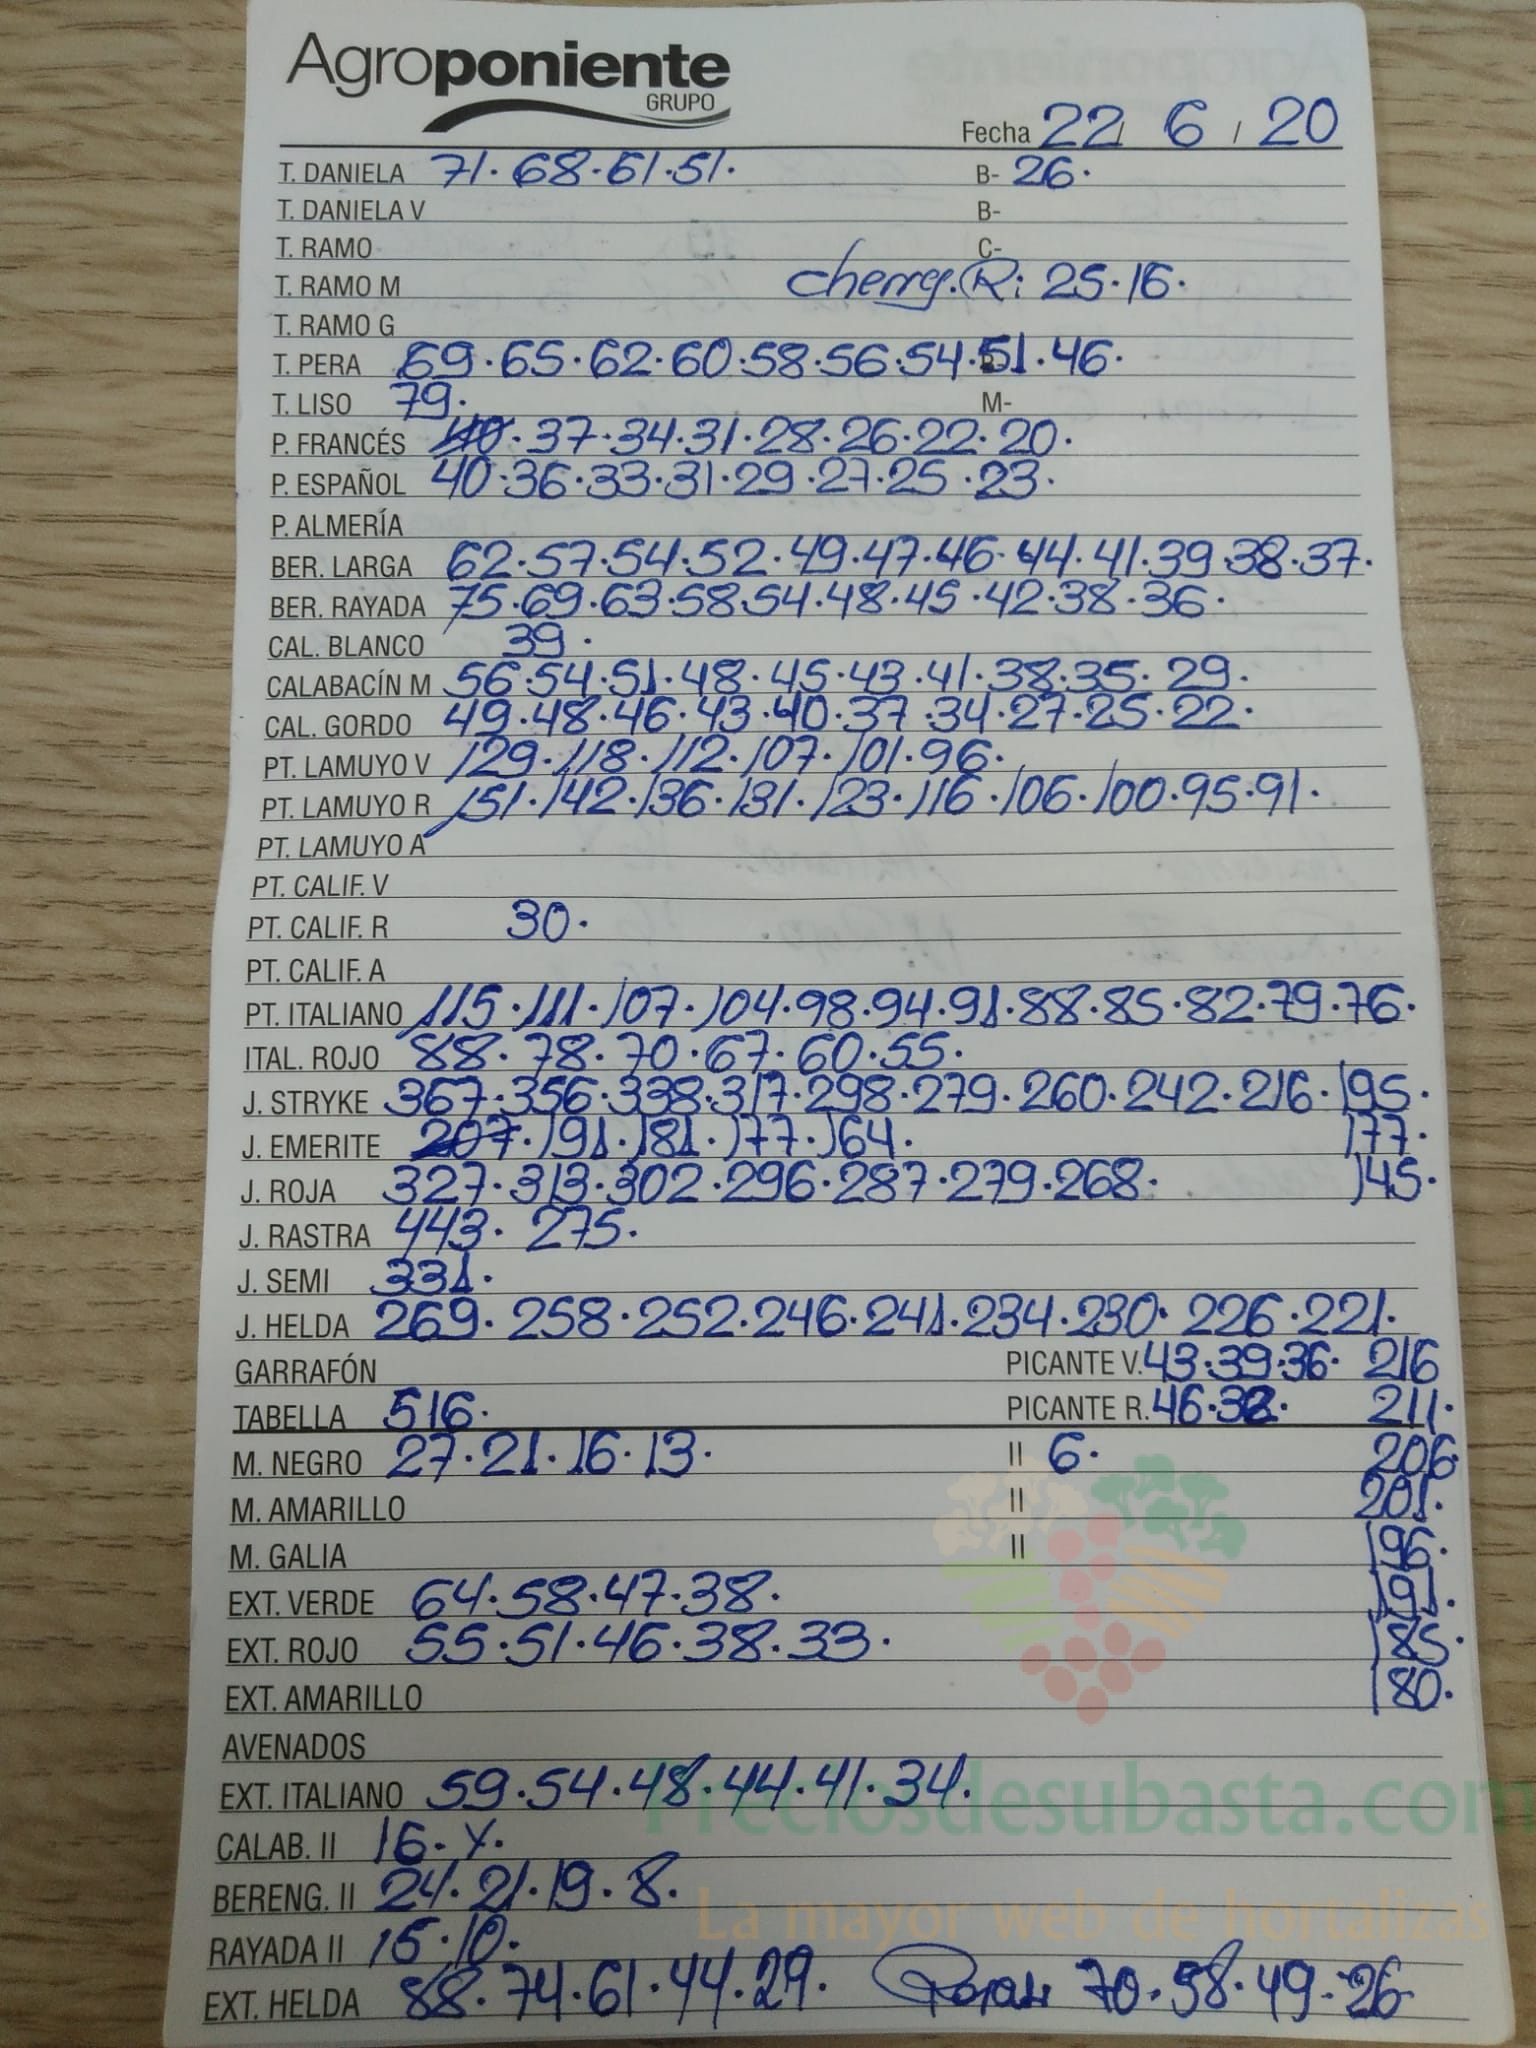 Agroponiente
GRUPO
Fecha 22/ 6 / 20
T. DANIELA 71. 68. 61. 51. B- 26.
T. DANIELA V B-
T. RAMO C-
T. RAMO M Cherry. R: 25. 16.
T. RAMO G
T. PERA 69. 65. 62. 60. 58. 56. 54. 51. 46.
T. LISO 79. M-
P. FRANCÉS 40. 37. 34. 31. 28. 26. 22. 20.
P. ESPAÑOL 40. 36. 33. 31. 29. 27. 25. 23.
P. ALMERÍA
BER. LARGA 62. 57. 54. 52. 49. 47. 46. 44. 41. 39. 38. 37.
BER. RAYADA 75. 69. 63. 58. 54. 48. 45. 42. 38. 36.
CAL. BLANCO 39.
CALABACÍN M 56. 54. 51. 48. 45. 43. 41. 38. 35. 29.
CAL. GORDO 49. 48. 46. 43. 40. 37. 34. 27. 25. 22.
PT. LAMUYO V 129. 118. 112. 107. 101. 96.
PT. LAMUYO R 151. 142. 136. 131. 123. 116. 106. 100. 95. 91.
PT. LAMUYO A
PT. CALIF. V
PT. CALIF. R 30.
PT. CALIF. A
PT. ITALIANO 115. 111. 107. 104. 98. 94. 91. 88. 85. 82. 79. 76.
ITAL. ROJO 88. 78. 70. 67. 60. 55.
J. STRYKE 367. 356. 338. 317. 298. 279. 260. 242. 216. 195.
J. EMERITE 207. 191. 181. 177. 164. 177.
J. ROJA 327. 313. 302. 296. 287. 279. 268. 145.
J. RASTRA 443. 275.
J. SEMI 331.
J. HELDA 269. 258. 252. 246. 241. 234. 230. 226. 221.
GARRAFÓN PICANTE V. 43. 39. 36. 216
TABELLA 516. PICANTE R. 46. 32. 211.
M. NEGRO 27. 21. 16. 13. II 6. 206.
M. AMARILLO II 201.
M. GALIA II 196.
EXT. VERDE 64. 58. 47. 38. 191.
EXT. ROJO 55. 51. 46. 38. 33. 185.
EXT. AMARILLO 180.
AVENADOS
EXT. ITALIANO 59. 54. 48. 44. 41. 34.
Preciosdesubasta.com
CALAB. II 16. Y.
BERENG. II 24. 21. 19. 8.
La mayor web de hortalizas
RAYADA II 15. 10.
EXT. HELDA 88. 74. 61. 44. 29. 70. 58. 49. 26